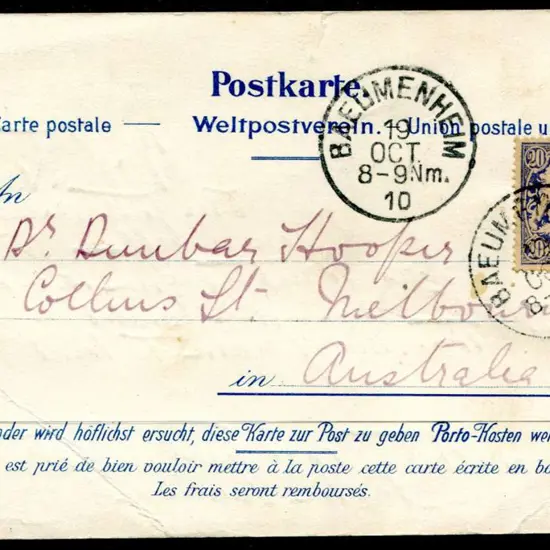 Postkarte
arte postale — Weltpostverein. Union postale u
BAEUMENHEIM
19
OCT.
8-9Nm.
10
20
20
BAEUM
8-
An
Dr Dunbar Hooper
Collins St. Melbour
in Australia
nder wird höflichst ersucht, diese Karte zur Post zu geben Porto-Kosten wer
est prié de bien vouloir mettre à la poste cette carte écrite en bo
Les frais seront remboursés.